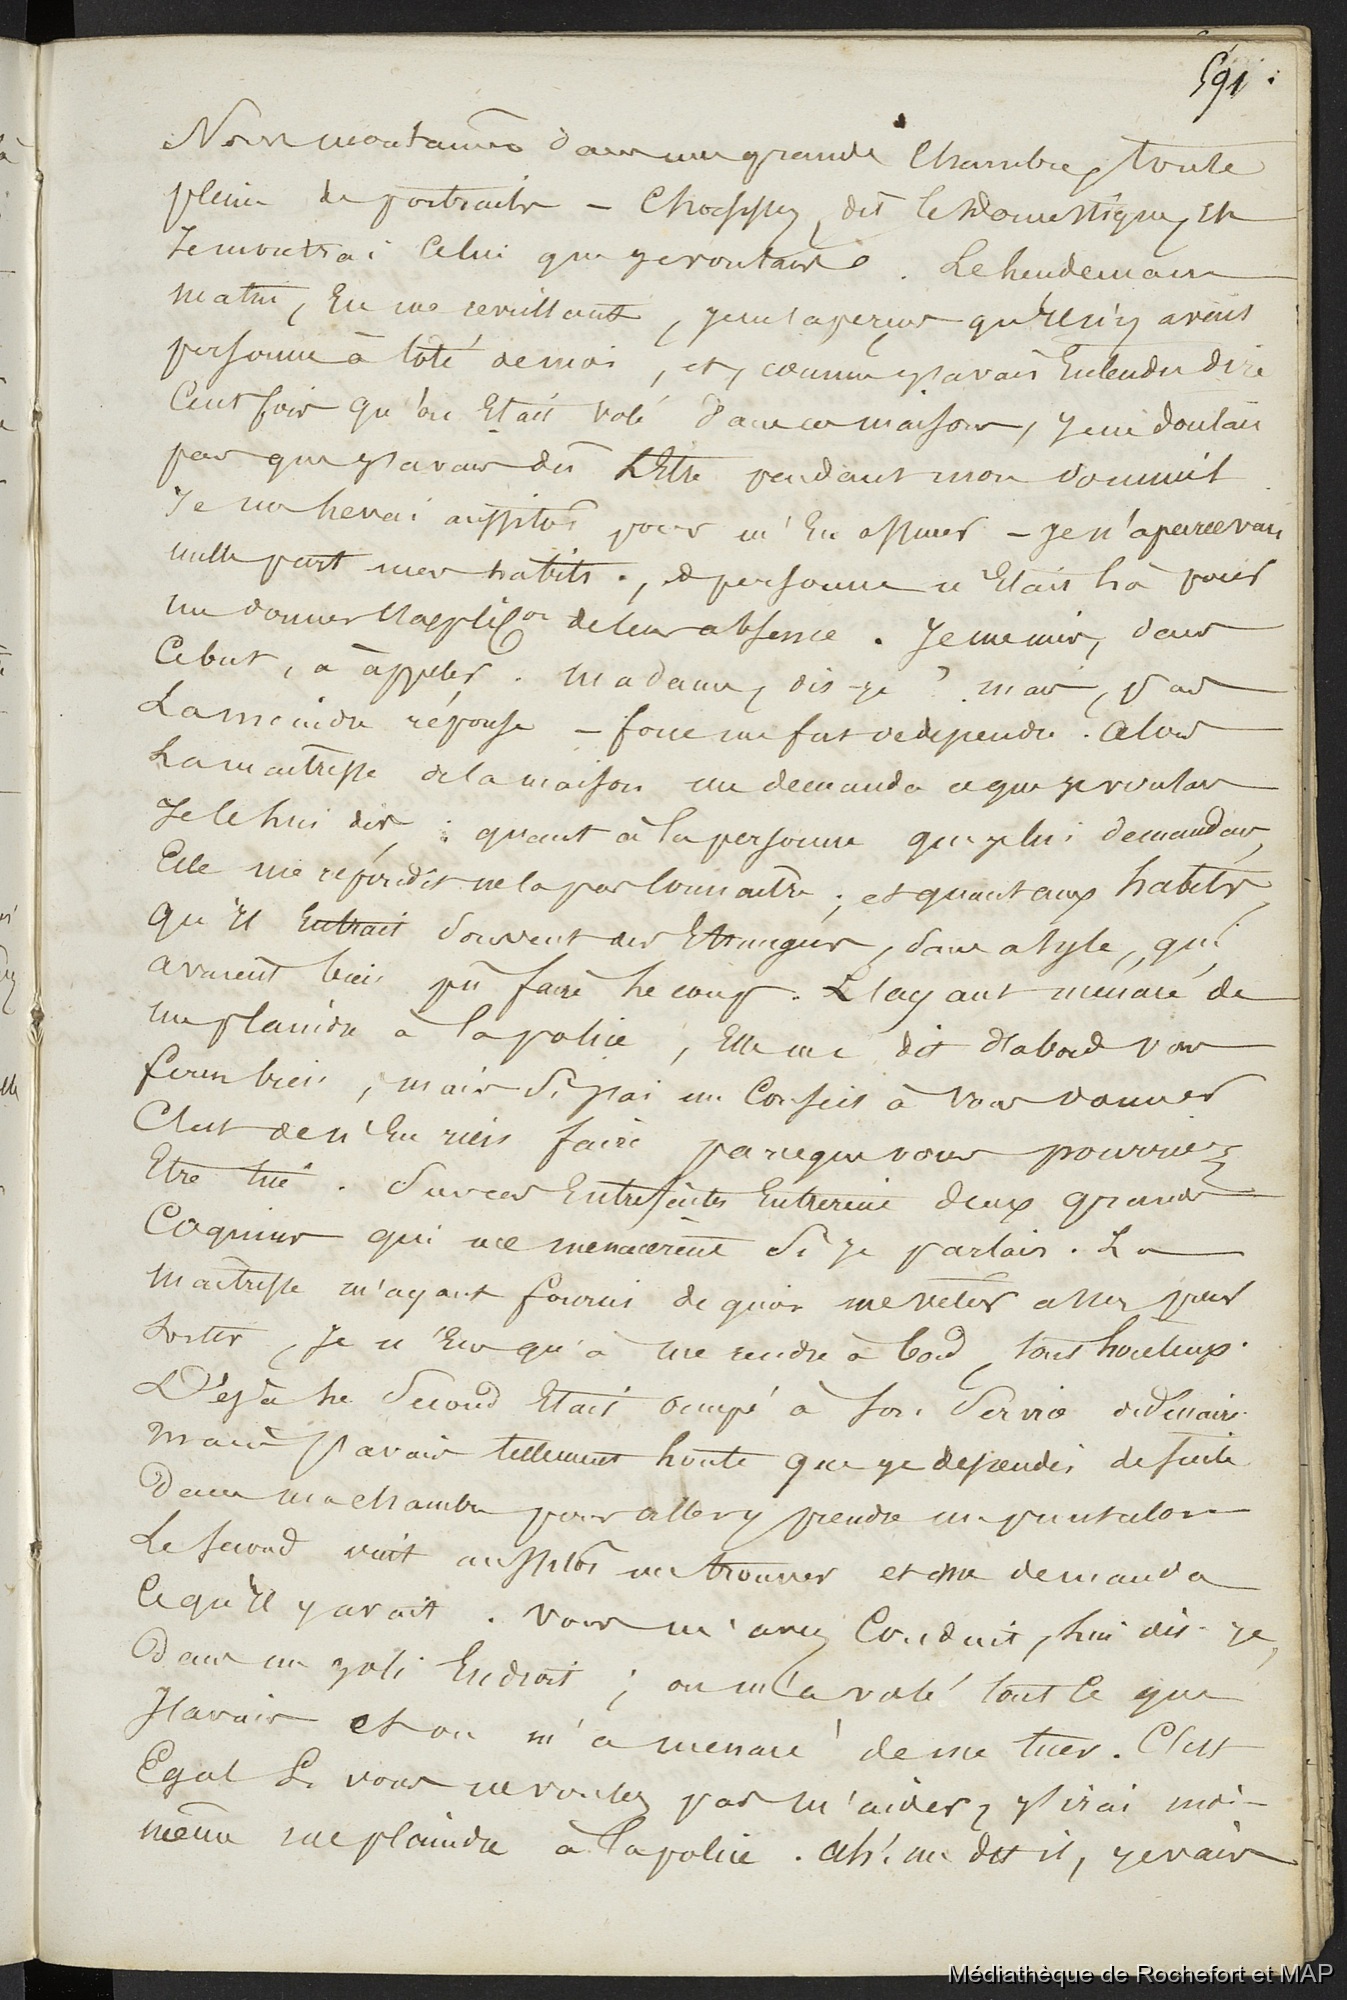 591.
Nous montames dans une grande Chambre, toute
pleine de portraits – Choisissez, dit le Domestique, Et
Je montrai Celui que je voulais. Le lendemain
matin, En me reveillant, je m'aperçus qu'Il n'y avait
personne à Coté de moi, et, comme j'avais Entendu dire
Cent fois qu'on Etait volé dans ces maisons, je ne doutais
pas que j'avais dû L'Etre pendant mon sommeil.
Je me levai aussitot pour m'En assurer – Je n'apercevais
nulle part mes habits., & personne n'Etait là pour
me donner l'applicon de leur absence. Je me mis, dans
Ce but, à appeler. Madame, dis-je? mais, pas
La moindre réponse – force me fut de descendre. Alors
La maitresse de la maison me demanda ce que je voulais
Je le lui dis; quant à la personne que je lui demandais,
Elle me répondit ne la pas Connaitre; et quant aux habits,
qu'Il Entrait Souvent des Etrangers, dans asyle, qui
avaient bien pû faire le coup. L'ayant menacé de
me plaindre à la police, Elle me dit d'abord vous
ferez bien, mais Si j'ai un Conseil à vous donner
C'est de n'En rien faire parceque vous pourriez
Etre tué. Sur ces Entrefaites Entrerent deux grands
Coquins qui me menacerent Si je parlais. La
maitresse m'ayant fourni de quoi me vêtir assez pour
Sortir, Je n'Eus qu'à me rendre à bord, tout honteux.
Déjà le Second Etait occupé à Son Service ordinaire
mais j'avais tellement honte que je descendis de suite
Dans ma chambre pour aller y prendre un pantalon
Le Second vint aussitot me trouver et me demanda
Ce qu'Il y avait. Vous m'avez Conduit, lui dis-je,
Dans un joli Endroit; on m'a volé tout Ce que
J'avais et on m'a menacé de me tuer. C'est
Egal Si vous ne voulez pas m'aider, j'irai moi-
même me plaindre à la police. Ah! me dit il, je vais
Médiathèque de Rochefort et MAP